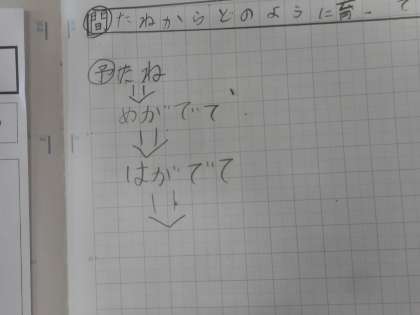 問 たねからどのように育
予 たね
めがでて、
はがでて